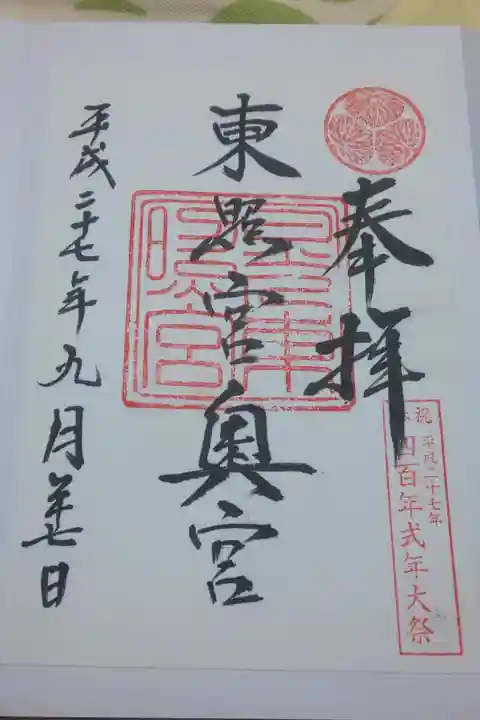 奉拝
奉祝 平成二十七年
四百年式年大祭
東照宮奥宮
平成二十七年九月廿七日